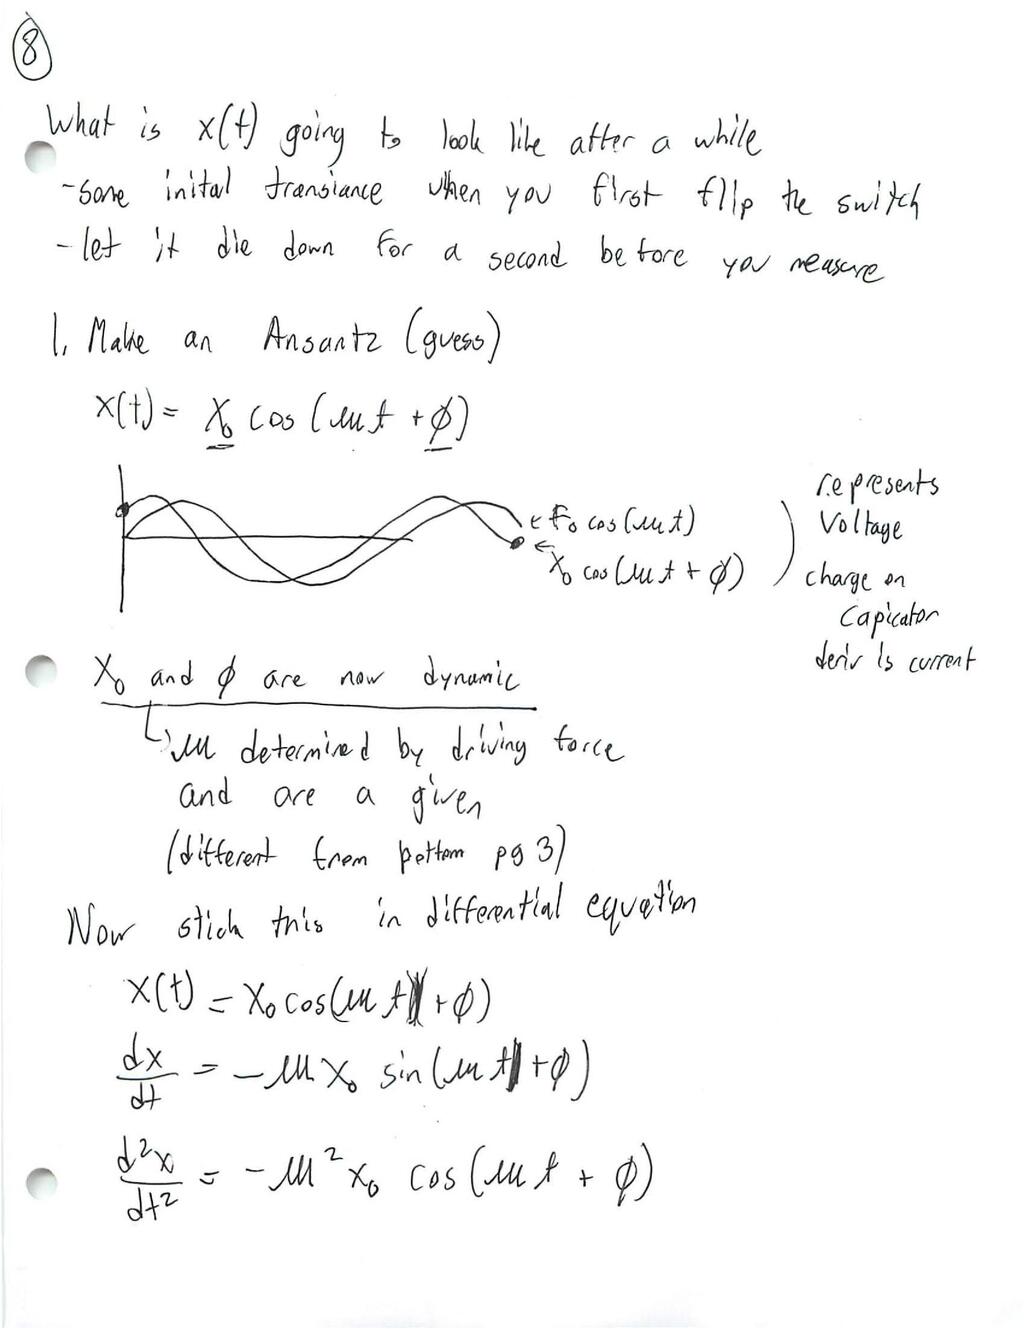 8
What is x(t) going to look like after a while
- some inital transiance when you first flip the switch
- let it die down for a second before you measure
1. Make an Ansantz (guess)
x(t) = X₀ cos (ω t + φ)
← F₀ cos (ω t)
← X₀ cos (ω t + φ)
represents
Voltage
charge on
Capicator
deriv is current
X₀ and φ are now dynamic
↳ ω determined by driving force
and are a given
(different from bottom pg 3)
Now stick this in differential equation
x(t) = X₀ cos(ω t + φ)
dx/dt = - ω X₀ sin (ω t + φ)
d²x/dt² = - ω² x₀ cos (ω t + φ)